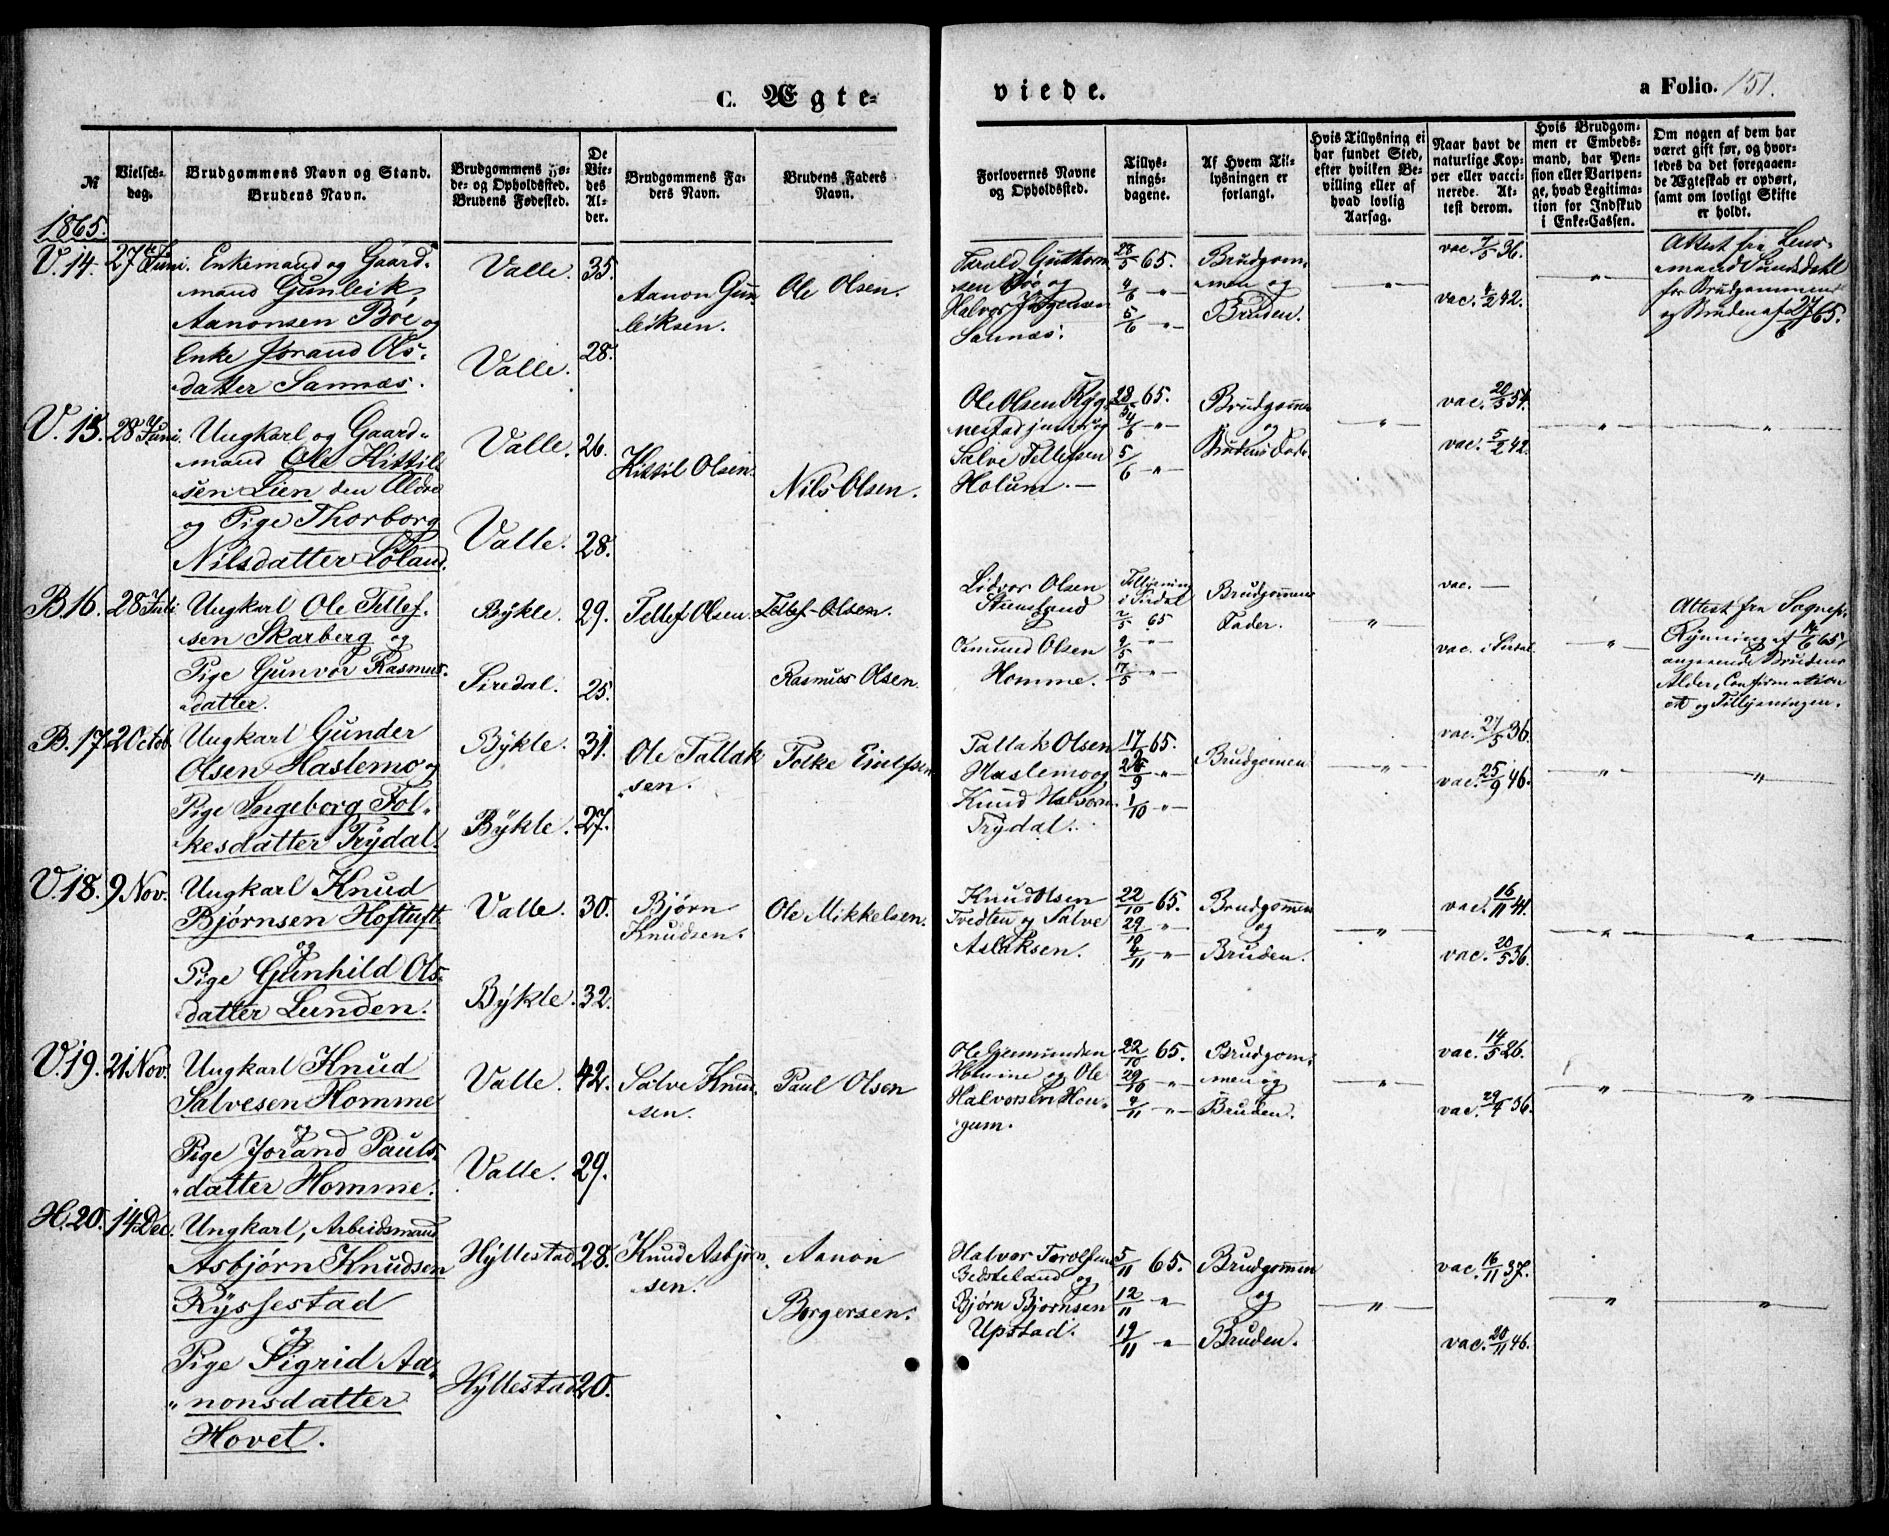 C. Ægte-
viede.
a Folio. 151.
№
Vielses-
dag.
Brudgommens Navn og Stand.
Brudens Navn.
Brudgommens Fø-
de- og Opholdssted.
Brudens Fødested.
De
Vie-
des
Al-
der.
Brudgommens Fa-
ders Navn.
Brudens Faders
Navn.
Forlovernes Navne
og Opholdssted.
Tillys-
nings-
dagene.
Af Hvem Til-
lysningen er
forlangt.
Hvis Tillysning ei
har fundet Sted,
efter hvilken Be-
villing eller af
hvad lovlig
Aarsag.
Naar havt de
naturlige Kop-
per eller vacci-
nerede. At-
test derom.
Hvis Brudgom-
men er Embeds-
mand, har Pen-
sion eller Vartpen-
ge, hvad Legitima-
tion for Indskud
i Enke-Cassen.
Om nogen af dem har
været gift før, og hvor-
ledes da det foregaaen-
de Ægteskab er ophørt,
samt om lovligt Skifte
er holdt.
1865.
V. 14. 27de Juni. Enkemand og Gaard-
mand Gunleik
Aanonsen Bøe og
Enke Jorand Ols-
datter Sannæs.
Valle. 35.
Valle. 28.
Aanon Gun
leiksen.
Ole Olsen.
Tarald Guthorm
sen Bøe og
Halvor Jørgensen
Sannæs.
28/5 65.
4/6 "
5/6 "
Brudgom-
men og
Bruden.
"
vac. 7/5 36.
vac. 4/2 42.
"
Attest fra Lens-
mand Sundsdahl
for Brudgommen
og Bruden af 27/6 65.
V. 15. 28de Juni. Ungkarl og Gaard-
mand Ole Kittil
sen Lien den Ældre
og Pige Thorborg
Nilsdatter Løland.
Valle. 26.
Valle. 28.
Kittil Olsen.
Nils Olsen.
Ole Olsen Ryg-
nestad og
Salve Tellefsen
Holum.
28/5 65.
4/6 "
5/6 "
Brudgommen
og
Brudens Fader
"
vac. 20/5 54.
vac. 5/2 42.
"
"
B. 16. 28 Juli Ungkarl Ole Tellef-
sen Skarberg og
Pige Gunvor Rasmus-
datter.
Bykle. 29.
Siredal. 25.
Tellef Olsen.
Tellef Olsen.
Rasmus Olsen.
Lidvor Olsen
Omund Olsen
Homme.
Tillysning
i Sirdal
2/5 65
9/5 "
17/5 "
Brudgommens
Fader.
"
vac. —
vac. i Sirdal
"
Attest fra Sognepr.
Rynning af 14/6 65,
angaaende Brudens
Alder, Confirmation
og Tillysningen.
B. 17. 2 Octob. Ungkarl Gunder
Olsen Haslemo og
Pige Ingeborg Fol-
kesdatter Trydal.
Bykle. 31.
Bykle. 27.
Ole Tallak
sen.
Folke Eiulfsen
Tallak Olsen
Haslemo og
Knud Halvorsn.
Trydal.
17/9 65.
24/9 "
1/10 "
Brudgomen
"
vac. 27/5 36.
vac. 25/9 46.
"
"
V. 18. 9 Nov. Ungkarl Knud
Bjørnsen Hoftuft
og
Pige Gunhild Ols-
datter Lunden.
Valle. 30.
Bykle. 32.
Bjørn
Knudsen.
Ole Mikkelsen.
Knud Olsen
Tvedten og Salve
Aslaksen.
22/10 65.
29/10 "
4/11 "
Brudgommen
og
Bruden.
"
vac. 16/11 41.
vac. 20/5 36.
"
"
V. 19. 21 Nov. Ungkarl Knud
Salvesen Homme
og
Pige Jorand Pauls-
datter Homme.
Valle. 42.
Valle. 29.
Salve Knud-
sen.
Paul Olsen
Homme og Ole
Halvorsen Hou-
gum.
22/10 65.
29/10 "
4/11 "
Brudgom-
men og
Bruden.
"
vac. 14/5 26.
vac. 29/4 36.
"
"
H. 20. 14 Dec. Ungkarl, Arbeidsmand
Asbjørn Knudsen
Ryssestad
og
Pige Sigrid Aa-
nonsdatter
Hovet.
Hyllestad 28.
Hyllestad 20.
Knud Asbjørn
sen.
Aanon
Borgersen.
Halvor Torolfsen
og
Bjørn Bjørnsen
Upstad.
5/11 65.
12/11 "
19/11 "
Brudgommen
og
Bruden.
"
vac. 16/11 37.
vac. 20/11 46.
"
"